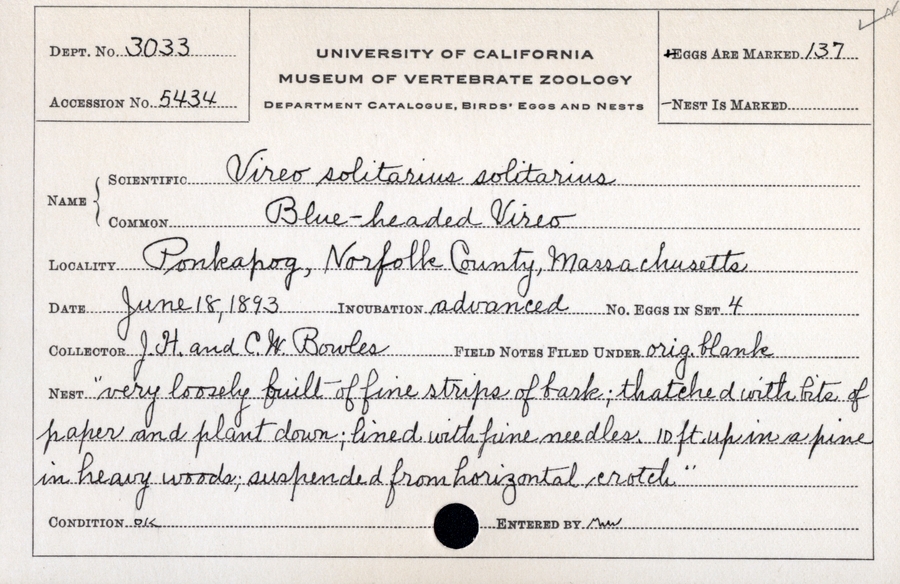 Dept. No. 3033
Accession No. 5434
UNIVERSITY OF CALIFORNIA
MUSEUM OF VERTEBRATE ZOOLOGY
Department Catalogue, Birds' Eggs and Nests
Eggs Are Marked 137
Nest Is Marked
Name
Scientific Vireo solitarius solitarius
Common Blue-headed Vireo
Locality Ponkapog, Norfolk County, Massachusetts
Date June 18, 1893 Incubation advanced No. Eggs in Set 4
Collector J. H. and C. W. Bowles Field Notes Filed Under orig. blank
Nest "very loosely built of fine strips of bark; thatched with bits of
paper and plant down; lined with pine needles. 10 ft. up in a pine
in heavy woods; suspended from horizontal crotch."
Condition OK Entered by